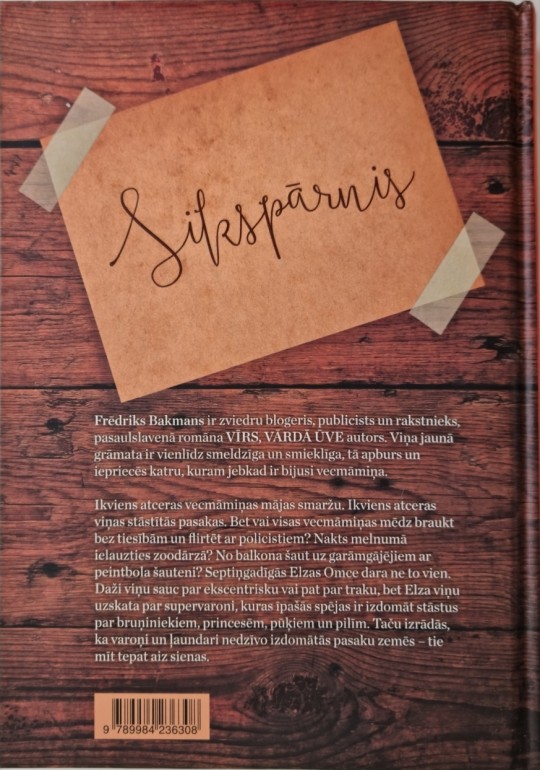 Sikspārnis
Fredriks Bakmans ir zviedru blogeris, publicists un rakstnieks,
pasaulslavenā romāna VĪRS, VĀRDĀ ŪVE autors. Viņa jaunā
grāmata ir vienlīdz smeldzīga un smieklīga, tā apburs un
iepriecēs katru, kuram jebkad ir bijusi vecmāmiņa.
Ikviens atceras vecmāmiņas mājas smaržu. Ikviens atceras
viņas stāstītās pasakas. Bet vai visas vecmāmiņas mēdz braukt
bez tiesībām un flirtēt ar policistiem? Nakts melnumā
ielauzties zoodārzā? No balkona šaut uz garāmgājējiem ar
peintbola šauteni? Septiņgadīgās Elzas Omce dara ne to vien.
Daži viņu sauc par ekscentrisku vai pat par traku, bet Elza viņu
uzskata par supervaroni, kuras īpašās spējas ir izdomāt stāstus
par bruņiniekiem, princesēm, pūķiem un pilīm. Taču izrādās,
ka varoņi un ļaundari nedzīvo izdomātās pasaku zemēs – tie
mīt tepat aiz sienas.
9 789984 236308